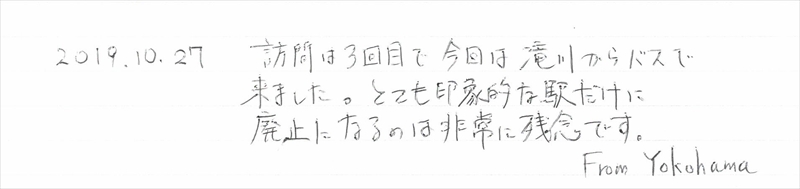 2019.10.27 訪問は3回目で今回は滝川からバスで
来ました。とても印象的な駅だけに
廃止になるのは非常に残念です。
From Yokohama